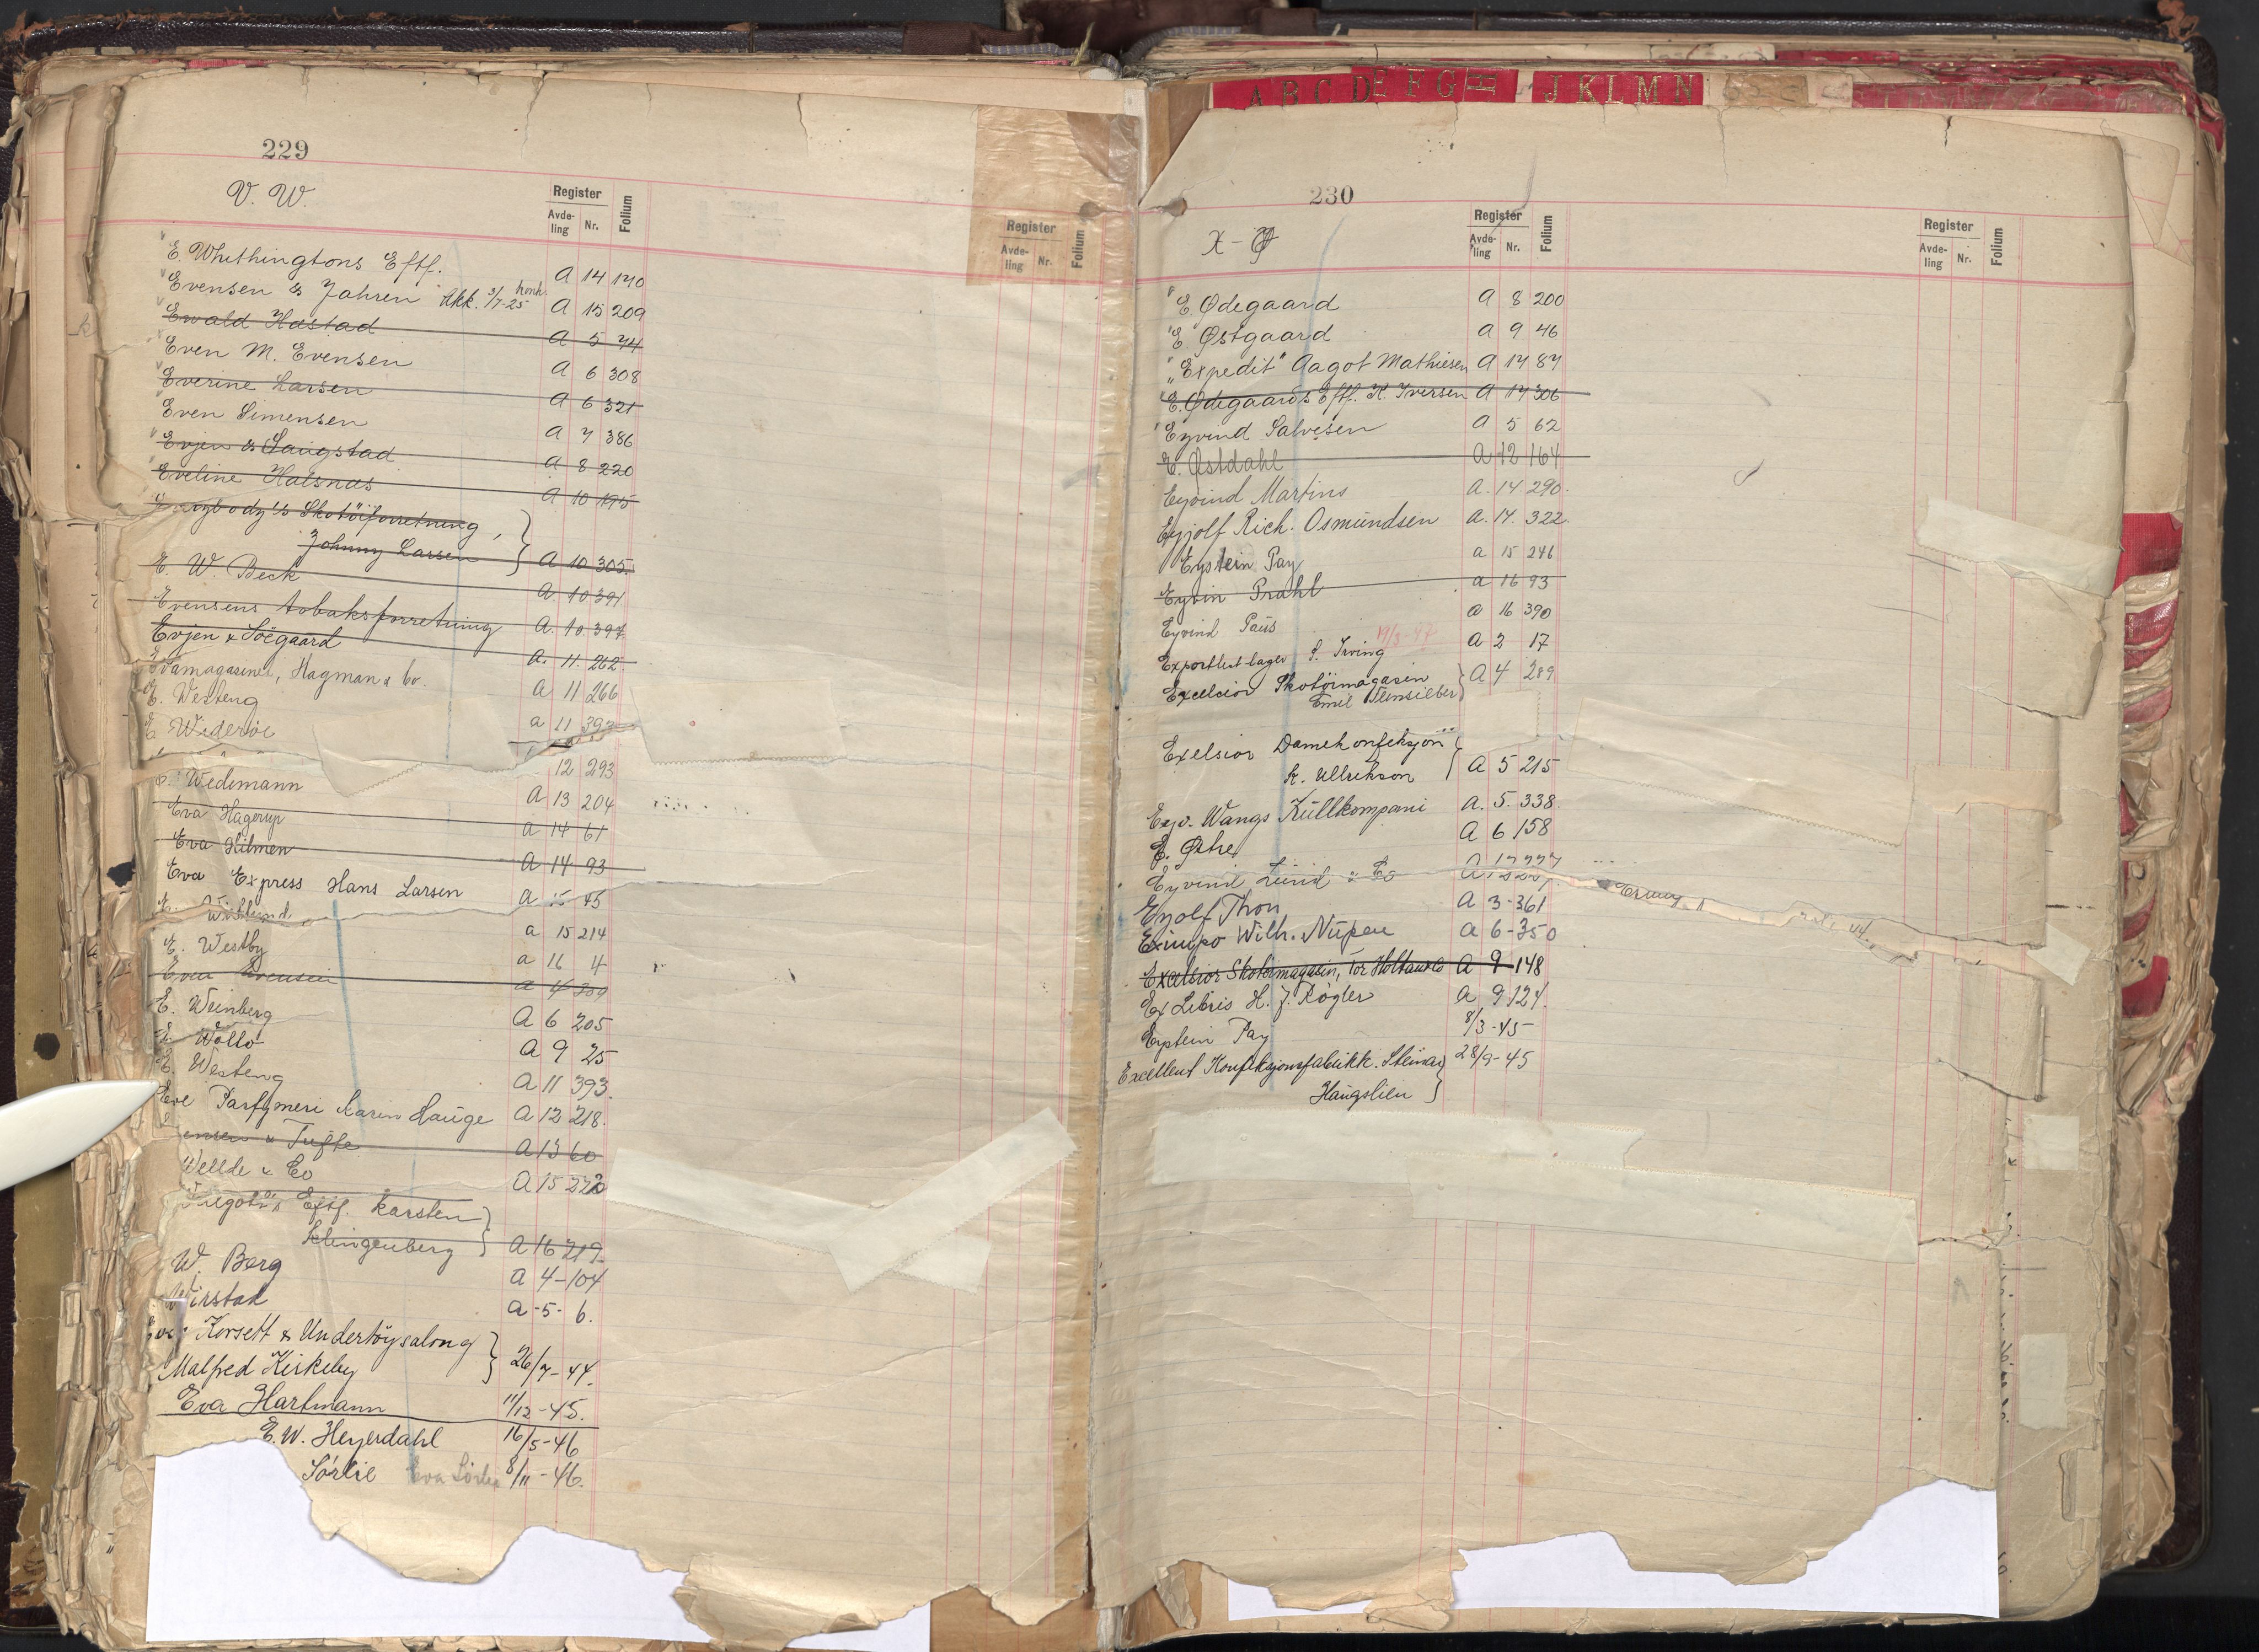 229
V. W.
Register
Avde-
ling
Nr.
Folium
Register
Avde-
ling
Nr.
Folium
E. Whithingtons Eftf. A 14 140
Evensen & Jahren Akk. 3/7-25 konk. A 15 209
Ewald Hastad A 5 44
Even M. Evensen A 6 308
Everine Larsen A 6 321
Even Simensen A 7 386
Evjen & Saugstad A 8 220
Eveline Halsnæs A 10 195
Skotöiforretning,
Johnny Larsen A 10 305.
E. W. Beck A 10 391
Evensens tobaksforretning A. 10. 397
Evjen & Söegaard A. 11. 262.
Evamagasinet, Hagman & Co. A 11 266
E. Westeng a 11 392
E Wideröe
12 293
E. Wedemann A 13 204
Eva Hagerup a 14 61
Eva Hilmen A 14 93
Eva Express Hans Larsen A 15 45
E. Wiklund a 15 214
E. Westby a 16 4
Even Evensen a 4 209
E. Weinberg A 6 205
E. Wollo A 9 25
E. Westeng A 11 393.
Eve Parfymeri Karin Hauge A 12 218.
& Tufte A 13 60
Wellde & Co A 15 222
Eftf. Karsten
Klingenberg A 16 219.
W. Berg A 4-104
Wirstad a-5-6.
Korsett & Undertöysalong
Malfred Kirkeby 26/7-44.
Eva Hartmann 11/12-45.
E.W. Heyerdahl 16/5-46
Sörlie Eva Sörlie 8/11-46.
A B C D E F G H I J K L M N
230
X - Ø
Register
Avde-
ling
Nr.
Folium
Register
Avde-
ling
Nr.
Folium
E. Ødegaard A 8 200
E. Østgaard A 9 46
"Expedit" Aagot Mathiesen A 14 87
E. Ødegaards Eftf. K. Iversen A 14 306
Eyvind Salvesen A 5 62
E. Østdahl A 12 164
Eyvind Martins A. 14. 290.
Eyjolf Rich. Osmundsen A. 14. 322.
Eystein Pay a 15 246
Eyvin Prahl a 16 93
Eyvind Paus a 16 390
Exportlest lager S. Irving 19/3-47 A 2 17
Excelsior Skotöimagasin
Emil Flensilber A 4 289
Exelsior Damekonfeksjon
K. Ullrikson A 5 215
Exp. Wangs Kullkompani A. 5. 338.
E. Østre A 6 158
Eyvind Lund & Co
Eyolf Thon A 3-361
Eximpo Wilh. Nupen a 6-350
Excelsior Skotöimagasin, Tor Holtan & Co A 9 148
Ex Libris H. J. Rögler A 9 124.
Eystein Pay 8/3-45
Excellent Konfeksjonsfabrikk. Steinar
Haugslien 28/9-45